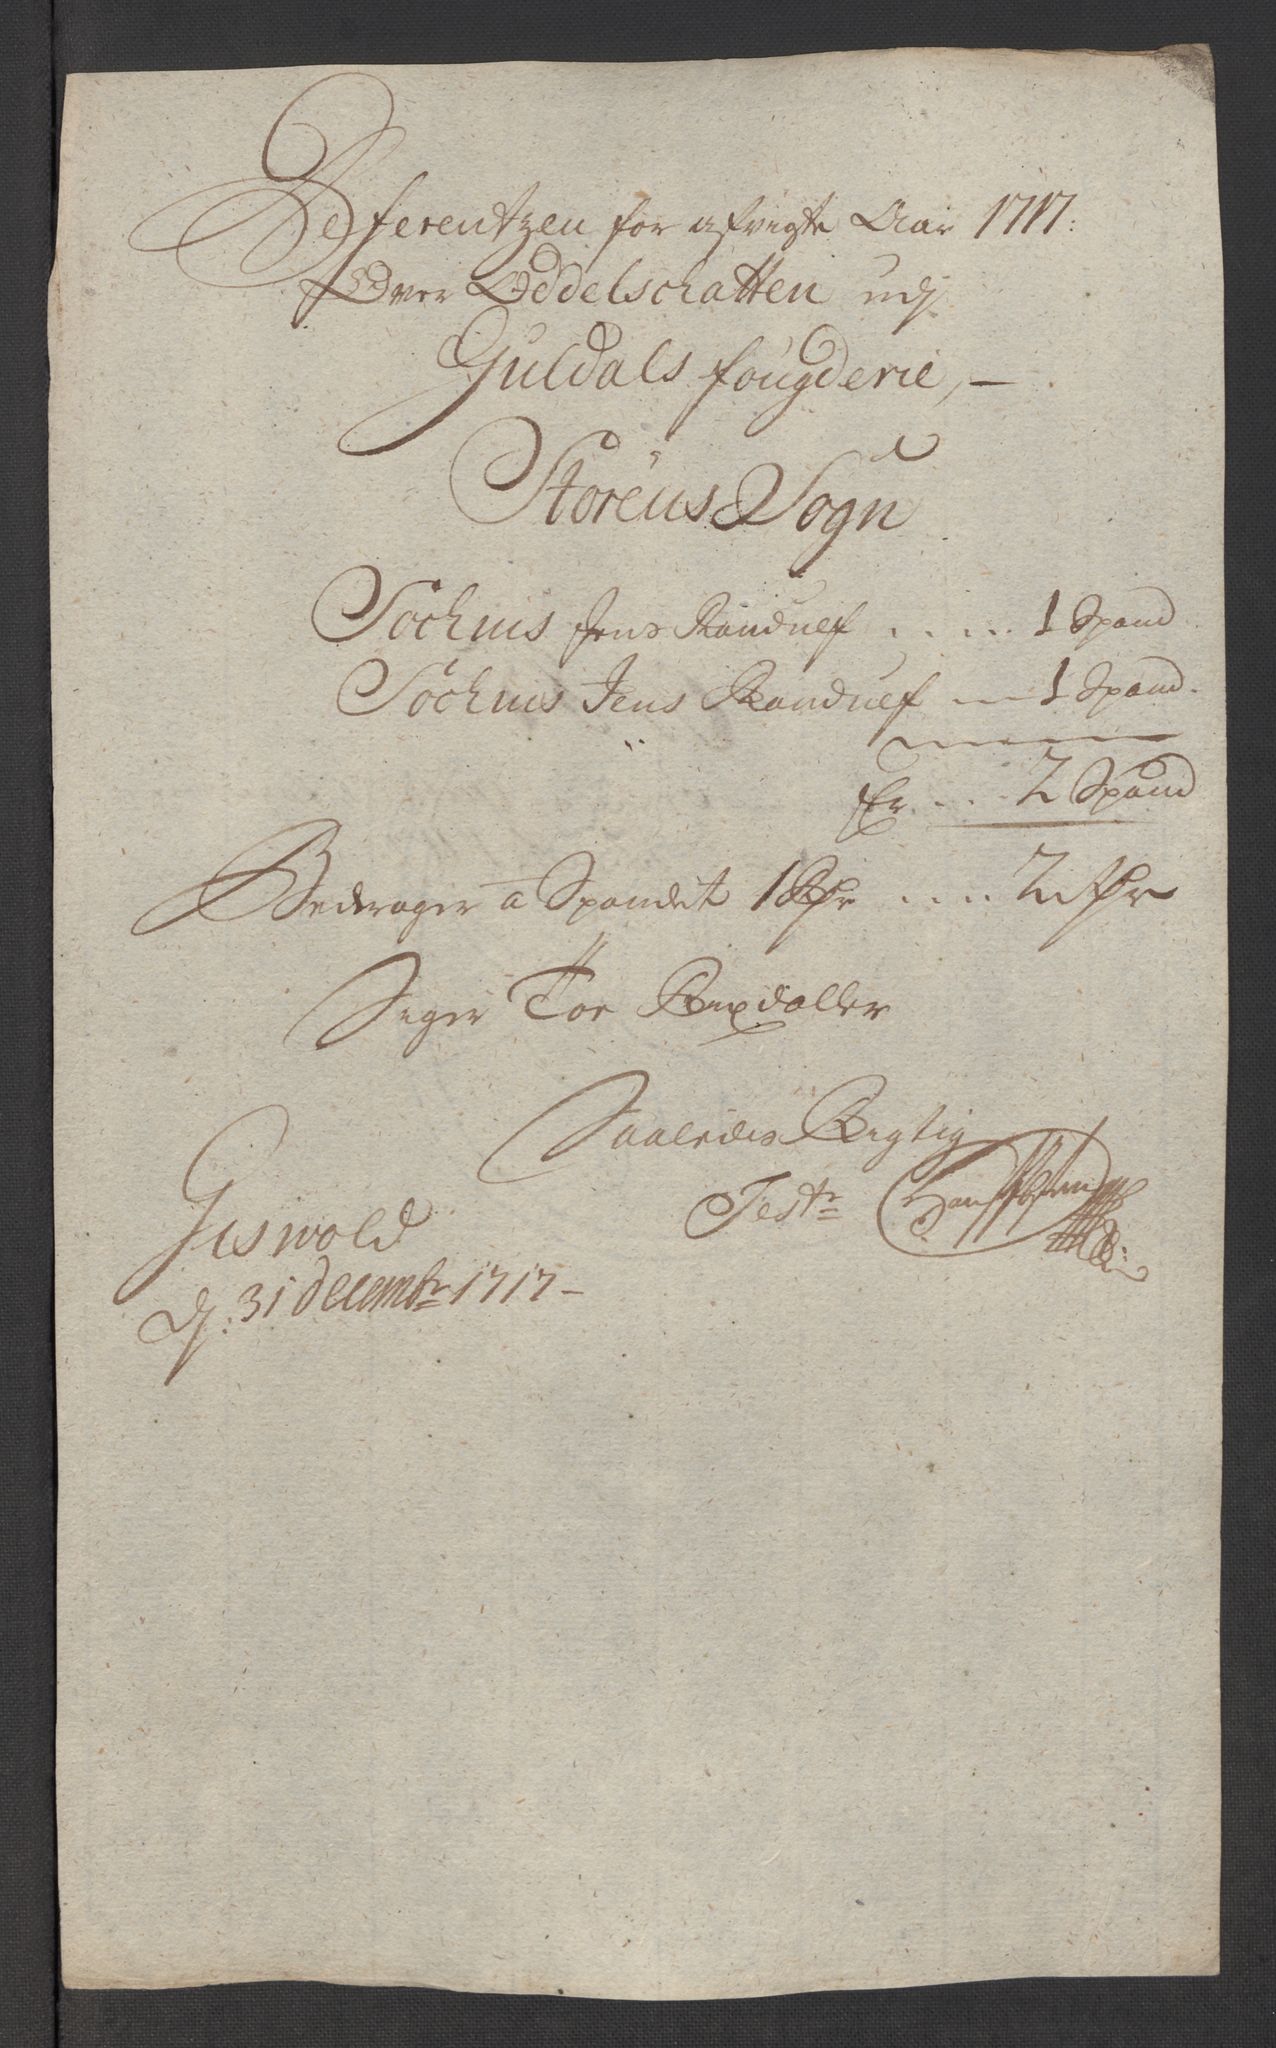 Deferentzen for afvigte Aar 1717:
Over Oddelschatten udj
Guldals fougderie, –
Störens Sogn
Sochnis Jens Randulf ..... 1 Spand
Sochnis Jens Randulf — 1 Spand.
Er ... 2 Spand
Bedrager a Spandet 1 Rdr .... 2 Rdr
Siger Toe Rixdaller
Saaledes Rigtig
Test:
Giswold
dj: 31 decembr 1717 –